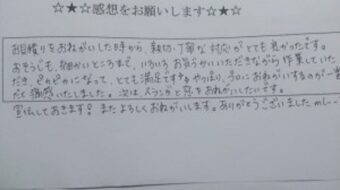 ☆★☆感想をお願いします☆★☆
お見積りをおねがいした時から、親切、丁寧な対応がとても良かったです。
おそうじも、細かいところまで、いろいろお気づかいいただきながら作業していた
だき、ピカピカになって、とても満足です。やっぱり、プロにおねがいするのが一番
だと痛感いたしました。次は、ベランダと窓をおねがいしたいです。
宣伝しておきます! またよろしくおねがいします。ありがとうございました m(_ _)m